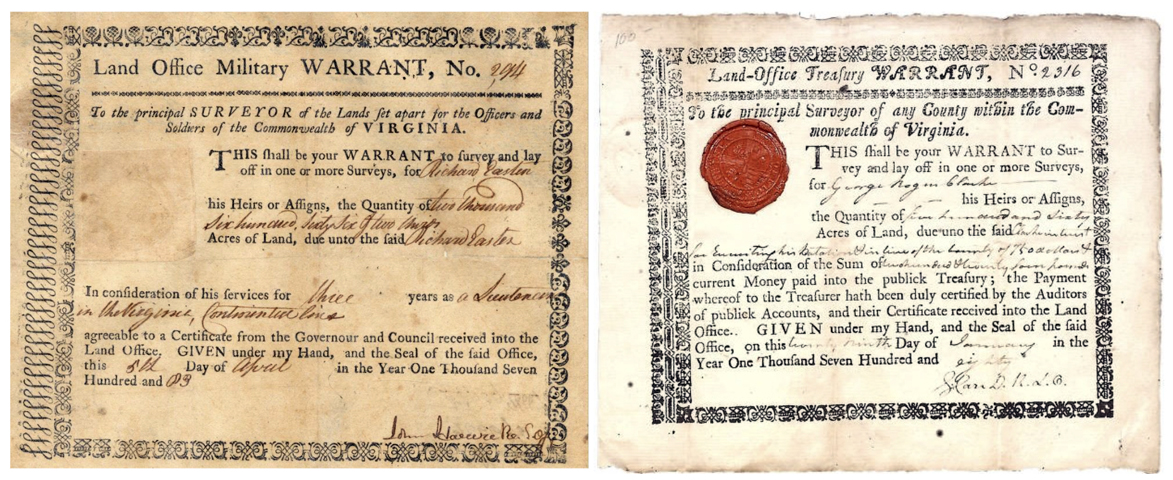 Land Office Military WARRANT, No. 294
To the principal SURVEYOR of the Lands ſet apart for the Officers and
Soldiers of the Commonwealth of VIRGINIA.
THIS ſhall be your WARRANT to ſurvey and lay
off in one or more Surveys, for Richard Easten
his Heirs or Aſſigns, the Quantity of two thousand
Six hundred, sixty Six & two thirds
Acres of Land, due unto the ſaid Richard Easten
In conſideration of his ſervices for three years as a Lieutenant
in the Virginia, Continental line
agreeable to a Certificate from the Governour and Council received into the
Land Office. GIVEN under my Hand, and the Seal of the ſaid Office,
this 5th Day of April in the Year One Thouſand Seven
Hundred and 83
John
100
Land-Office Treaſury WARRANT, No. 2316
To the principal Surveyor of any County within the Com-
monwealth of Virginia.
THIS ſhall be your WARRANT to Sur-
vey and lay off in one or more Surveys,
for George Rogers Clarke
his Heirs or Aſſigns,
the Quantity of five hundred and Sixty
Acres of Land, due unto the ſaid
for in lieu of the bounty of 750 dollars &
in Conſideration of the Sum of four pounds
current Money paid into the publick Treaſury; the Payment
whereof to the Treaſurer hath been duly certified by the Auditors
of publick Accounts, and their Certificate received into the Land
Office. GIVEN under my Hand, and the Seal of the ſaid
Office, on this twenty Ninth Day of January in the
Year One Thouſand Seven Hundred and eighty